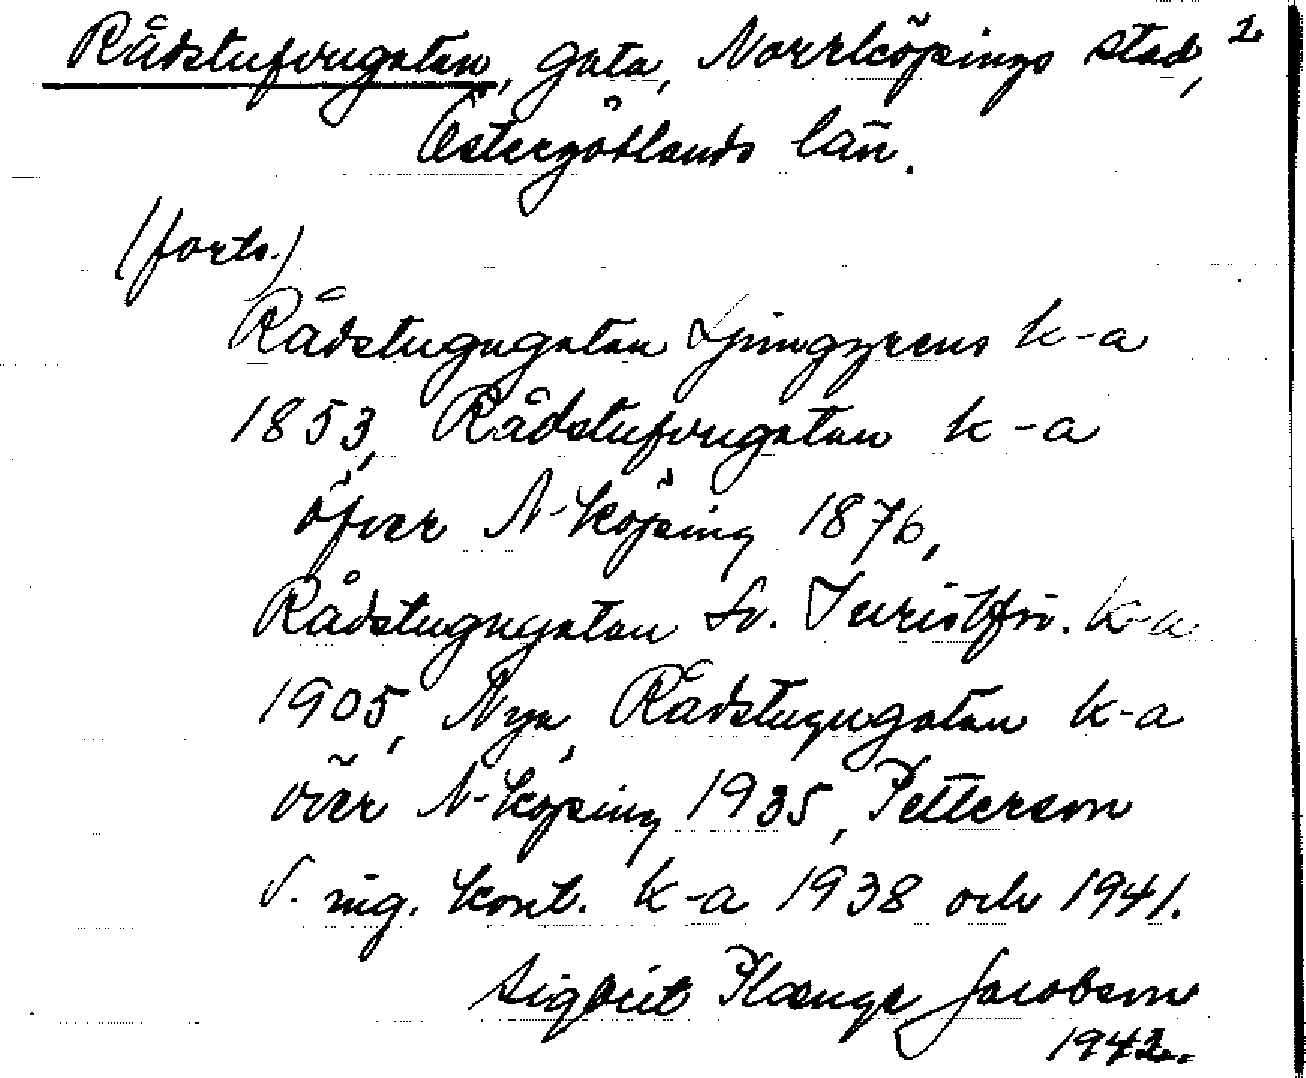 Rådstufvugatan, gata, Norrköpings stad, 2
Östergötlands län.
(forts.)
Rådstugugatan Ljunggrens k-a
1853, Rådstufvugatan k-a
öfver N-köping 1876,
Rådstugugatan Sv. Turistför. k-a
1905, Nya Rådstugugatan k-a
över N-köping 1935, Petterson
S. ing. kont. k-a 1938 och 1941.
Sigbrit Plænge Jacobson
1942.